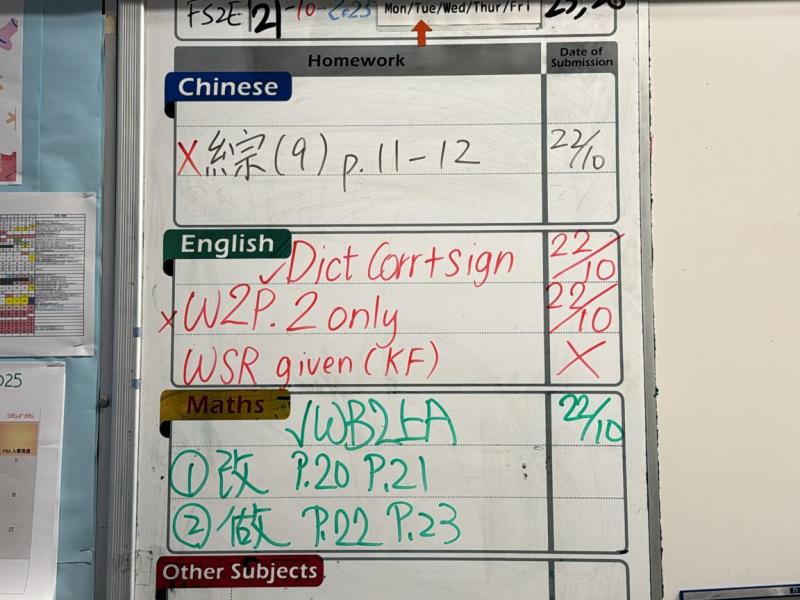 FS2E 21-10-2025 Mon/Tue/Wed/Thur/Fri
Homework Date of Submission
Chinese
X 綜(9) p.11-12 22/10
English
✓Dict Corr+sign 22/10
x W2P.2 only 22/10
WSR given (KF) X
Maths
✓WB2上A 22/10
① 改 P.20 P.21
② 做 P.22 P.23
Other Subjects
2025
Saturday